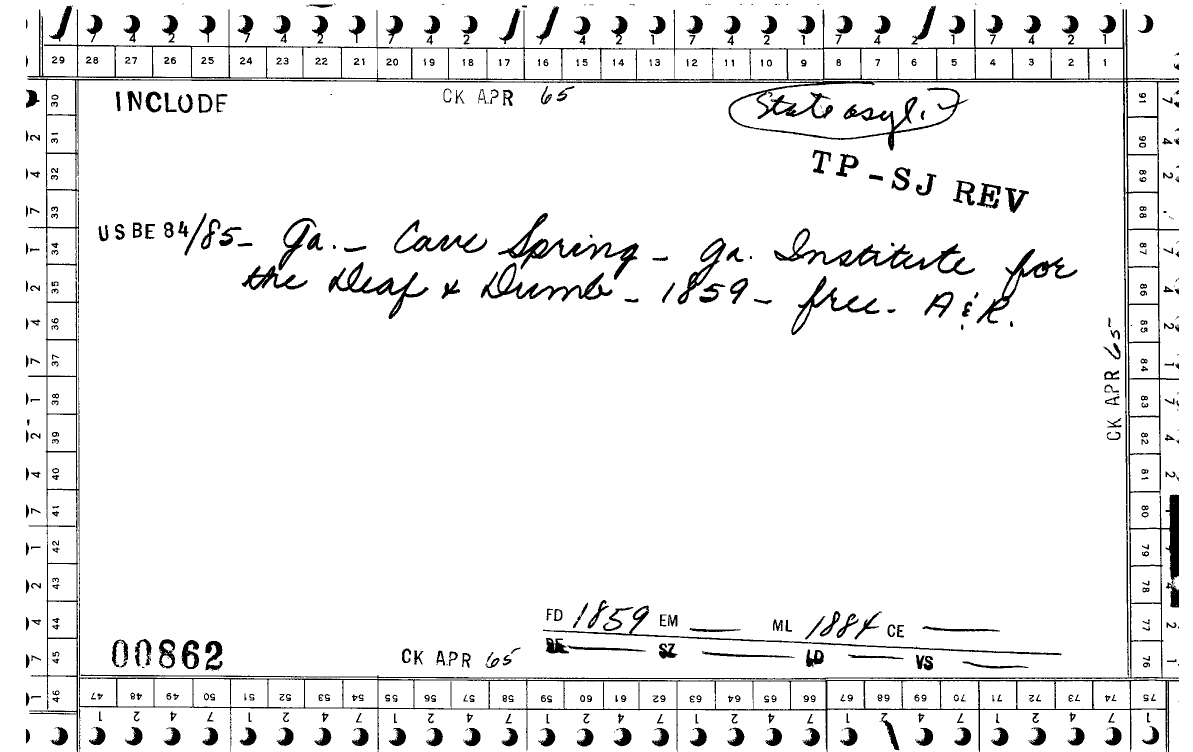 7 4 2 1 7 4 2 1 7 4 2 1 7 4 2 1 7 4 2 1 7 4 2 1 7 4 2 1
29 28 27 26 25 24 23 22 21 20 19 18 17 16 15 14 13 12 11 10 9 8 7 6 5 4 3 2 1
INCLUDE CK APR 65 State asyl.
TP-SJ REV
USBE 84/85- Ga. - Cave Spring - Ga. Institute for
the Deaf & Dumb - 1859 - free. A & R.
CK APR 65
FD 1859 EM — ML 1884 CE —
00862 CK APR 65 DE — SZ — LD — VS —
30 31 32 33 34 35 36 37 38 39 40 41 42 43 44 45 46
91 90 89 88 87 86 85 84 83 82 81 80 79 78 77 76 75
47 48 49 50 51 52 53 54 55 56 57 58 59 60 61 62 63 64 65 66 67 68 69 70 71 72 73 74
1 2 4 7 1 2 4 7 1 2 4 7 1 2 4 7 1 2 4 7 1 2 4 7 1 2 4 7 1